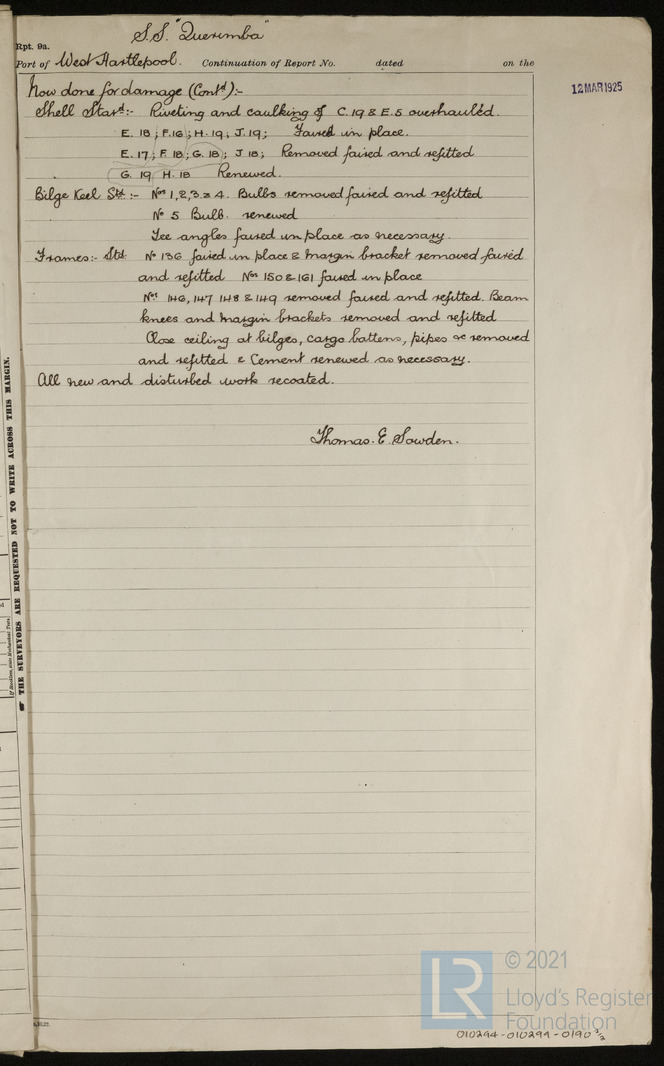 S.S. "Querimba"
Rpt. 9a.
Port of West Hartlepool. Continuation of Report No. dated on the
12 MAR 1925
Now done for damage (Contd):-
Shell Stard:- Riveting and caulking of C.19 & E.5 overhauled.
E. 18; F.16; H.19; J.19; Faired in place.
E.17; F.18; G.18; J 18; Removed faired and refitted
G. 19 H. 18 Renewed.
Bilge Keel Std:- Nos 1,2,3 & 4. Bulbs removed faired and refitted
No 5 Bulb. renewed
Tee angles faired in place as necessary.
Frames:- Std: No 136 faired in place & margin bracket removed faired
and refitted Nos 150 & 161 faired in place
Nos 146, 147 148 & 149 removed faired and refitted. Beam
knees and margin brackets removed and refitted
Close ceiling at bilges, cargo battens, pipes &c removed
and refitted & Cement renewed as necessary.
All new and disturbed work recoated.
Thomas. E. Sowden.
THE SURVEYORS ARE REQUESTED NOT TO WRITE ACROSS THIS MARGIN.
LR
© 2021
Lloyd's Register
Foundation
010294-010299-0190 2/2